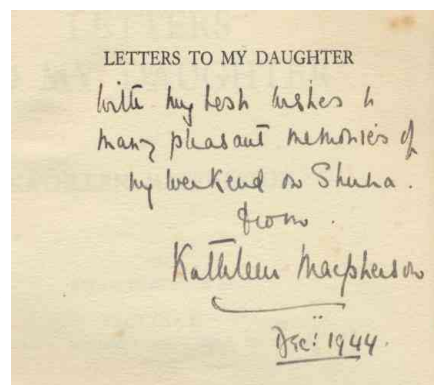 LETTERS TO MY DAUGHTER
With my best wishes &
many pleasant memories of
my weekend on Shuna.
from.
Kathleen Macpherson
Dec: 1944.